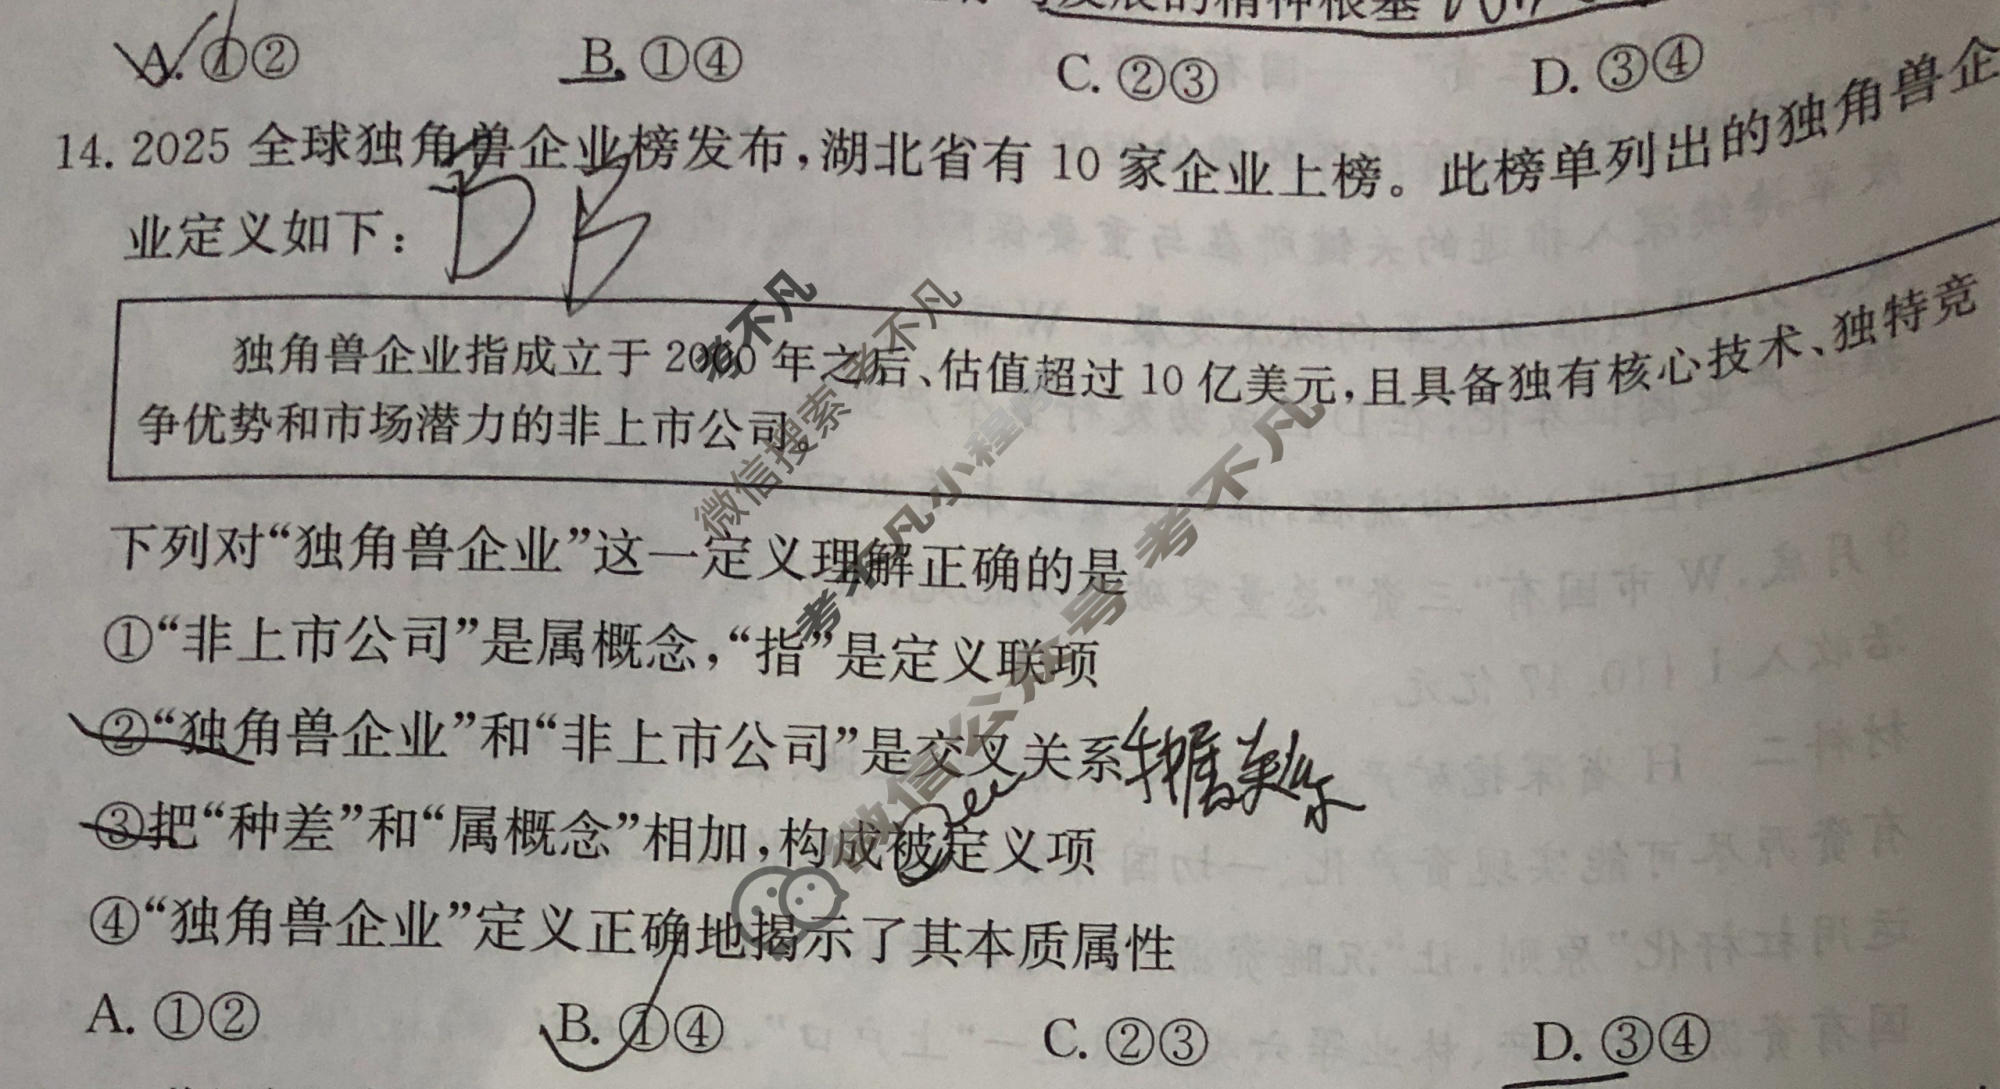 发展的精神根基
A. ①② B. ①④ C. ②③ D. ③④
14. 2025 全球独角兽企业榜发布,湖北省有 10 家企业上榜。此榜单列出的独角兽企
业定义如下:
D B
独角兽企业指成立于 2000 年之后、估值超过 10 亿美元,且具备独有核心技术、独特竞
争优势和市场潜力的非上市公司。
下列对“独角兽企业”这一定义理解正确的是
①“非上市公司”是属概念,“指”是定义联项
②“独角兽企业”和“非上市公司”是交叉关系
③把“种差”和“属概念”相加,构成被定义项
④“独角兽企业”定义正确地揭示了其本质属性
A. ①② B. ①④ C. ②③ D. ③④
考不凡
微信搜索 考不凡
考不凡小程
微信公众号 考不凡